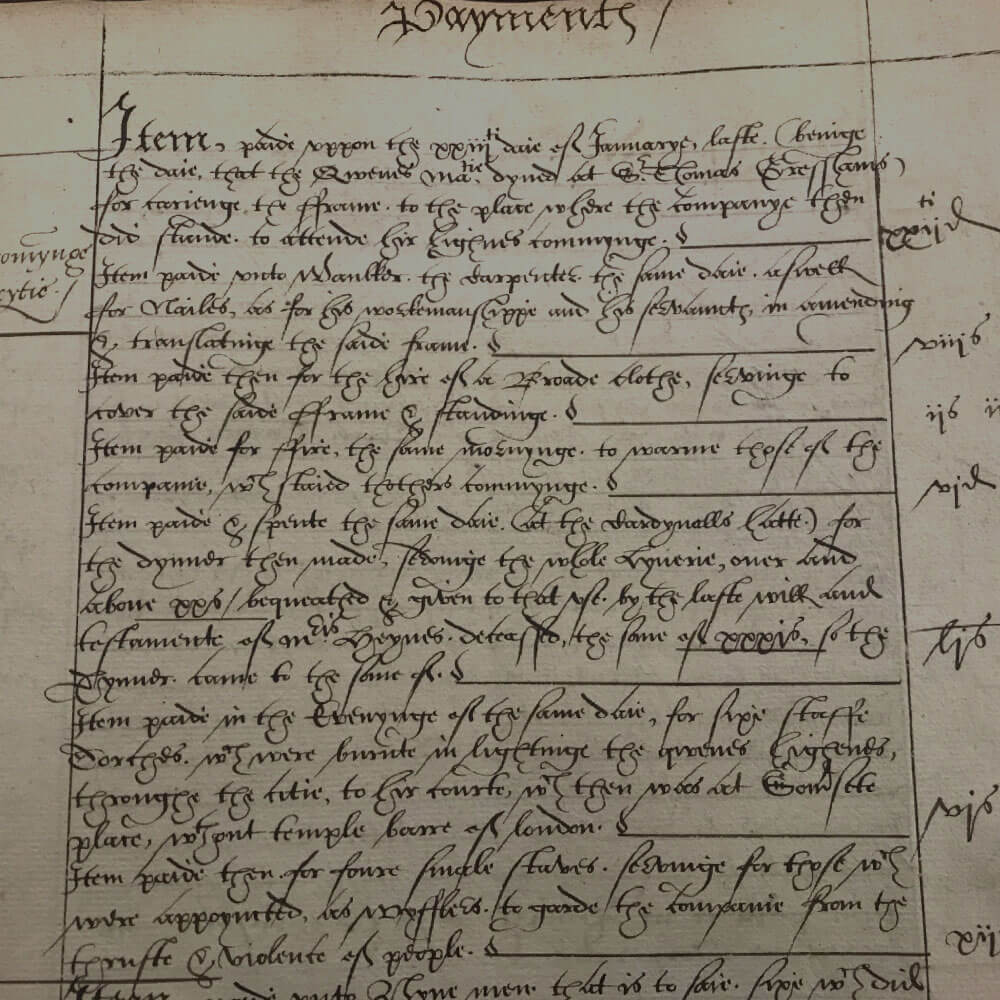 Payments /
Item, paide vppon the xxiij ti daie of Januarye, laste. (beinge
the daie, that the Qwenes Ma tie dyned at Sr Thomas Gresshams)
for carienge the fframe. to the place where the companye then
did stande. to attende hir highnes commynge.
xxiij ti d
omynge
cytie. /
Item paide vnto Waulker. the Carpenter. the same daie. aswell
for Nailes, as for his workemanshippe and his servaunts, in amending
& translatinge the saide frame.
viij s
Item paide then for the hire of a Broade clothe, servinge to
cover the saide fframe & standinge.
ij s ij
Item paide for ffire, the same mornynge. to warme those of the
companie, wch staied thothers commynge.
vj d
Item paide & spente the same daie. (at the Cardynalls hatte) for
the dynner then made, servinge the whole Lyverie, over and
above xx s / bequeathed & given to that vse. by the laste will and
testamente of m ris Heynes. deceassed, the some of xxxj s, so the
Dynner. came to the some of.
lj s
Item paide in the Evenynge of the same daie, for sixe staffe
Torches. wch were burnte in lightinge the qwenes highenes,
throughe the citie, to hir courte, wch then was at Somersette
place, wthout temple barre of london.
vj s
Item paide then. for foure single staves. servinge for those wch
were appoynted, as wyfflers. to garde the companie from the
thruste & violence of people.
xij
Item paide vnto Nyne men that is to saie. sixe wch did